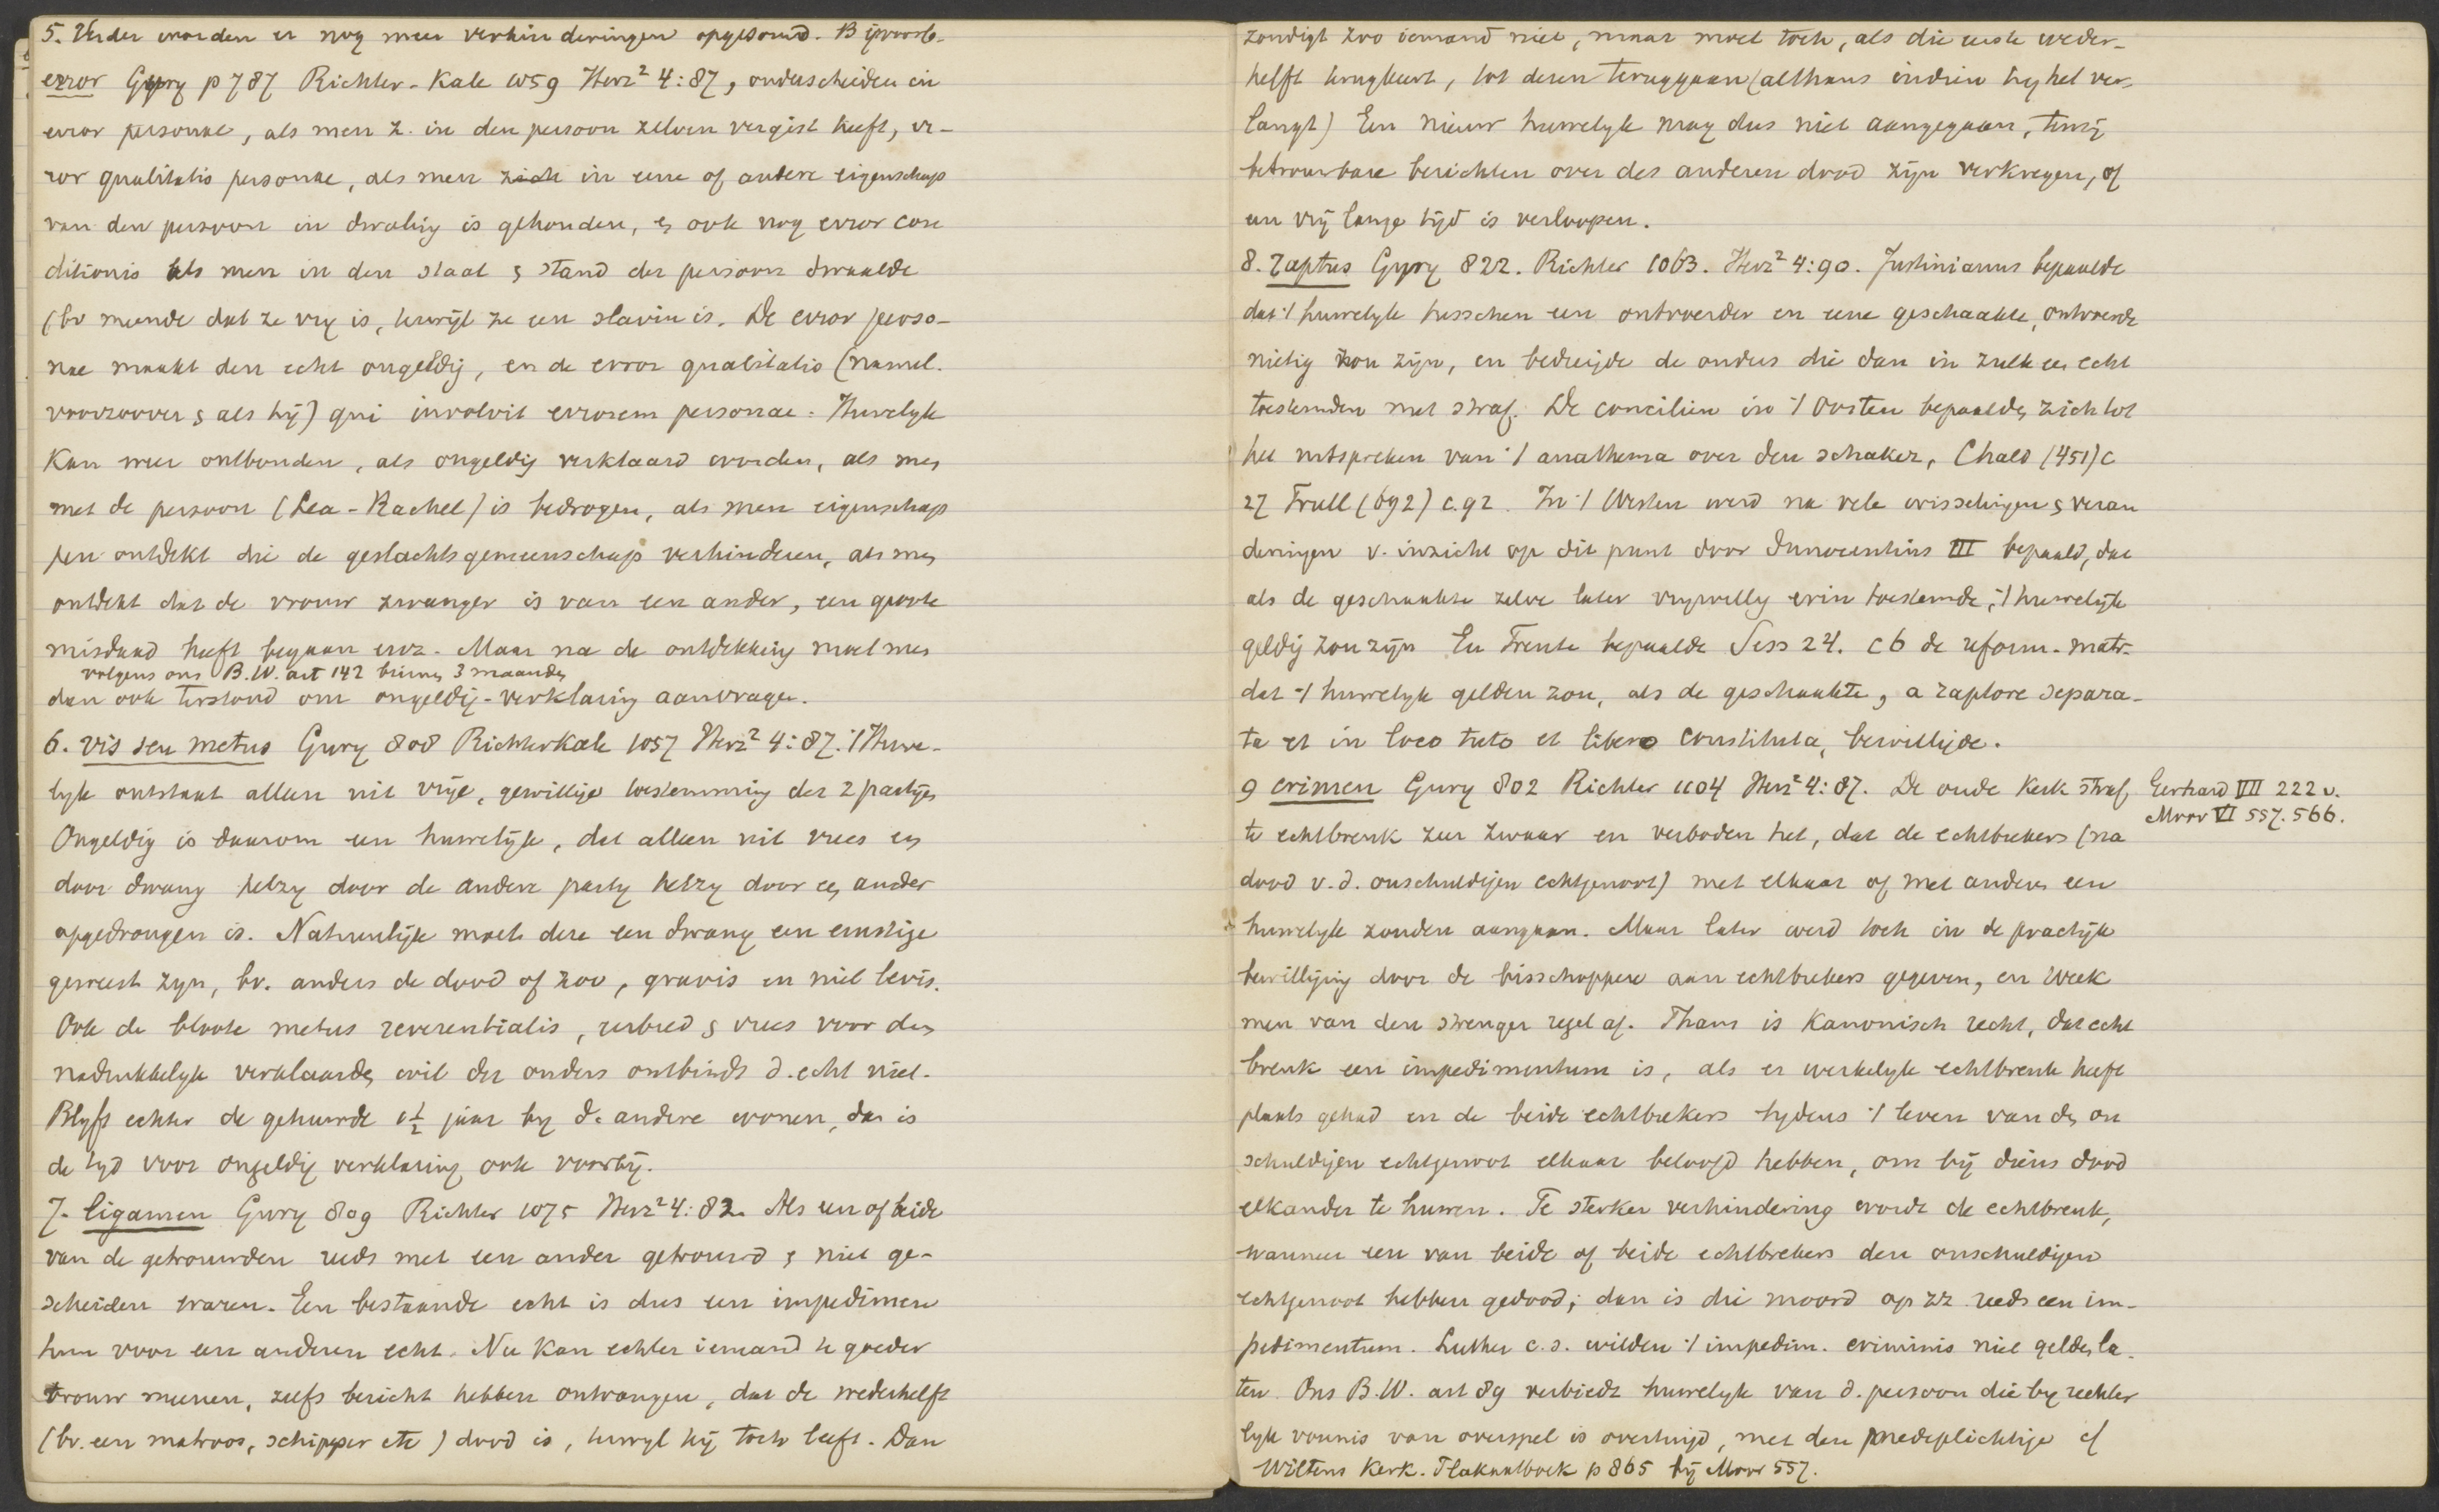 5. Verder worden er nog meer verhinderingen opgesomd. Bijvoorb.
error Gury p 787 Richter-Kale 1059 Herz² 4:87, onderscheiden in
error personae, als men z. in den persoon zelven vergist heeft, er-
ror qualitatis personae, als men zich in eene of andere eigenschap
van den persoon in dwaling is gehouden, en ook nog error con
ditionis als men in den staat & stand der persoon dwaalde
(bv meende dat ze vry is, terwijl ze een slavin is. De error perso-
nae maakt den echt ongeldig, en de error qualitatis (namel.
voorzoover & als hij) qui involvit errorem personae. Huwelyk
kan weer ontbonden, als ongeldig verklaard worden, als men
met de persoon (Lea-Rachel) is bedrogen, als men eigenschap
pen ontdekt die de geslachtsgemeenschap verhinderen, als men
ontdekt dat de vrouw zwanger is van een ander, een groote
misdaad heeft begaan enz. Maar na de ontdekking moet men
volgens ons B.W. art 142 binnen 3 maanden
dan ook terstond om ongeldig-verklaring aanvragen.
6. vis seu metus Gury 808 Richter Kale 1057 Herz² 4:87. 't Huwe-
lyk ontstaat alleen uit vrije, gewillige toestemming der 2 partijen
Ongeldig is daarom een huwelijk, dat alleen uit vrees en
door dwang hetzy door de andere party hetzy door een ander
opgedrongen is. Natuurlijk moet deze een dwang een ernstige
geweest zyn, bv. anders de dood of zoo, gravis en niet levis.
Ook de bloote metus reverentialis, eerbied & vrees voor den
nadrukkelyk verklaarden wil der ouders ontbindt d. echt niet.
Blyft echter de gehuwde 1½ jaar by d. andere wonen, dan is
de tyd voor ongeldig verklaring ook voorbij.
7. ligamen Gury 809 Richter 1075 Herz² 4:82. Als een of beide
van de getrouwden reeds met een ander getrouwd & niet ge-
scheiden waren. Een bestaande echt is dus een impedimen
tum voor een anderen echt. Nu kan echter iemand te goeder
trouw meenen, zelfs bericht hebben ontvangen, dat de wederhelft
(bv. een matroos, schipper etc) dood is, terwyl hij toch leeft. Dan
zondigt zoo iemand niet, maar moet toch, als die eerste weder-
helft terugkeert, tot dezen teruggaan (althans indien hy het ver-
langt) Een nieuw huwelyk mag dus niet aangegaan, tenzij
betrouwbare berichten over des anderen dood zijn verkregen, of
een vrij lange tijd is verloopen.
8. raptus Gury 822. Richter 1063. Herz² 4:90. Justinianus bepaalde
dat 't huwelyk tusschen een ontvoerder en eene geschaakte, ontvoerde
nietig zou zijn, en bedreigde de ouders die dan in zulk een echt
toestemden met straf. De conciliën in 't Oosten bepaalden zich tot
het uitspreken van 't anathema over den schaker, Chalc (451) c
27 Trull (692) c. 92. In 't Westen werd na vele wisselingen & veran
deringen v. inzicht op dit punt door Innocentius III bepaald, dat
als de geschaakte zelve later vrywillig erin toestemde, 't huwelijk
geldig zou zijn En Trente bepaalde Sess 24. c 6 de reform. matr.
dat 't huwelyk gelden zou, als de geschaakte, a raptore separa-
ta et in loco tuto et libero constituta, bewilligde.
9 crimen Gury 802 Richter 1104 Herz² 4:87. De oude kerk straf
Gerhard VII 222 v.
Moor VI 557. 566.
te echtbreuk zeer zwaar en verboden het, dat de echtbrekers (na
dood v.d. onschuldigen echtgenoot) met elkaar of met anderen een
huwelyk zouden aangaan. Maar later werd toch in de practijk
bewilliging door de bisschoppen aan echtbrekers gegeven, en week
men van den strenger regel af. Thans is kanonisch recht, dat echt
breuk een impedimentum is, als er werkelyk echtbreuk heeft
plaats gehad en de beide echtbrekers tydens 't leven van den on
schuldigen echtgenoot elkaar beloofd hebben, om bij diens dood
elkander te huwen. Te sterker verhindering wordt de echtbreuk,
wanneer een van beide of beide echtbrekers den onschuldigen
echtgenoot hebben gedood; dan is die moord op zz. reeds een im-
pedimentum. Luther c.s. wilden 't impedim. criminis niet gelden la-
ten. Ons B.W. art 89 verbiedt huwelyk van d. persoon die by rechter
lyk vonnis van overspel is overtuigd, met den medeplichtige cf
Wiltens Kerk. Plakaatboek p 865 bij Moor 557.